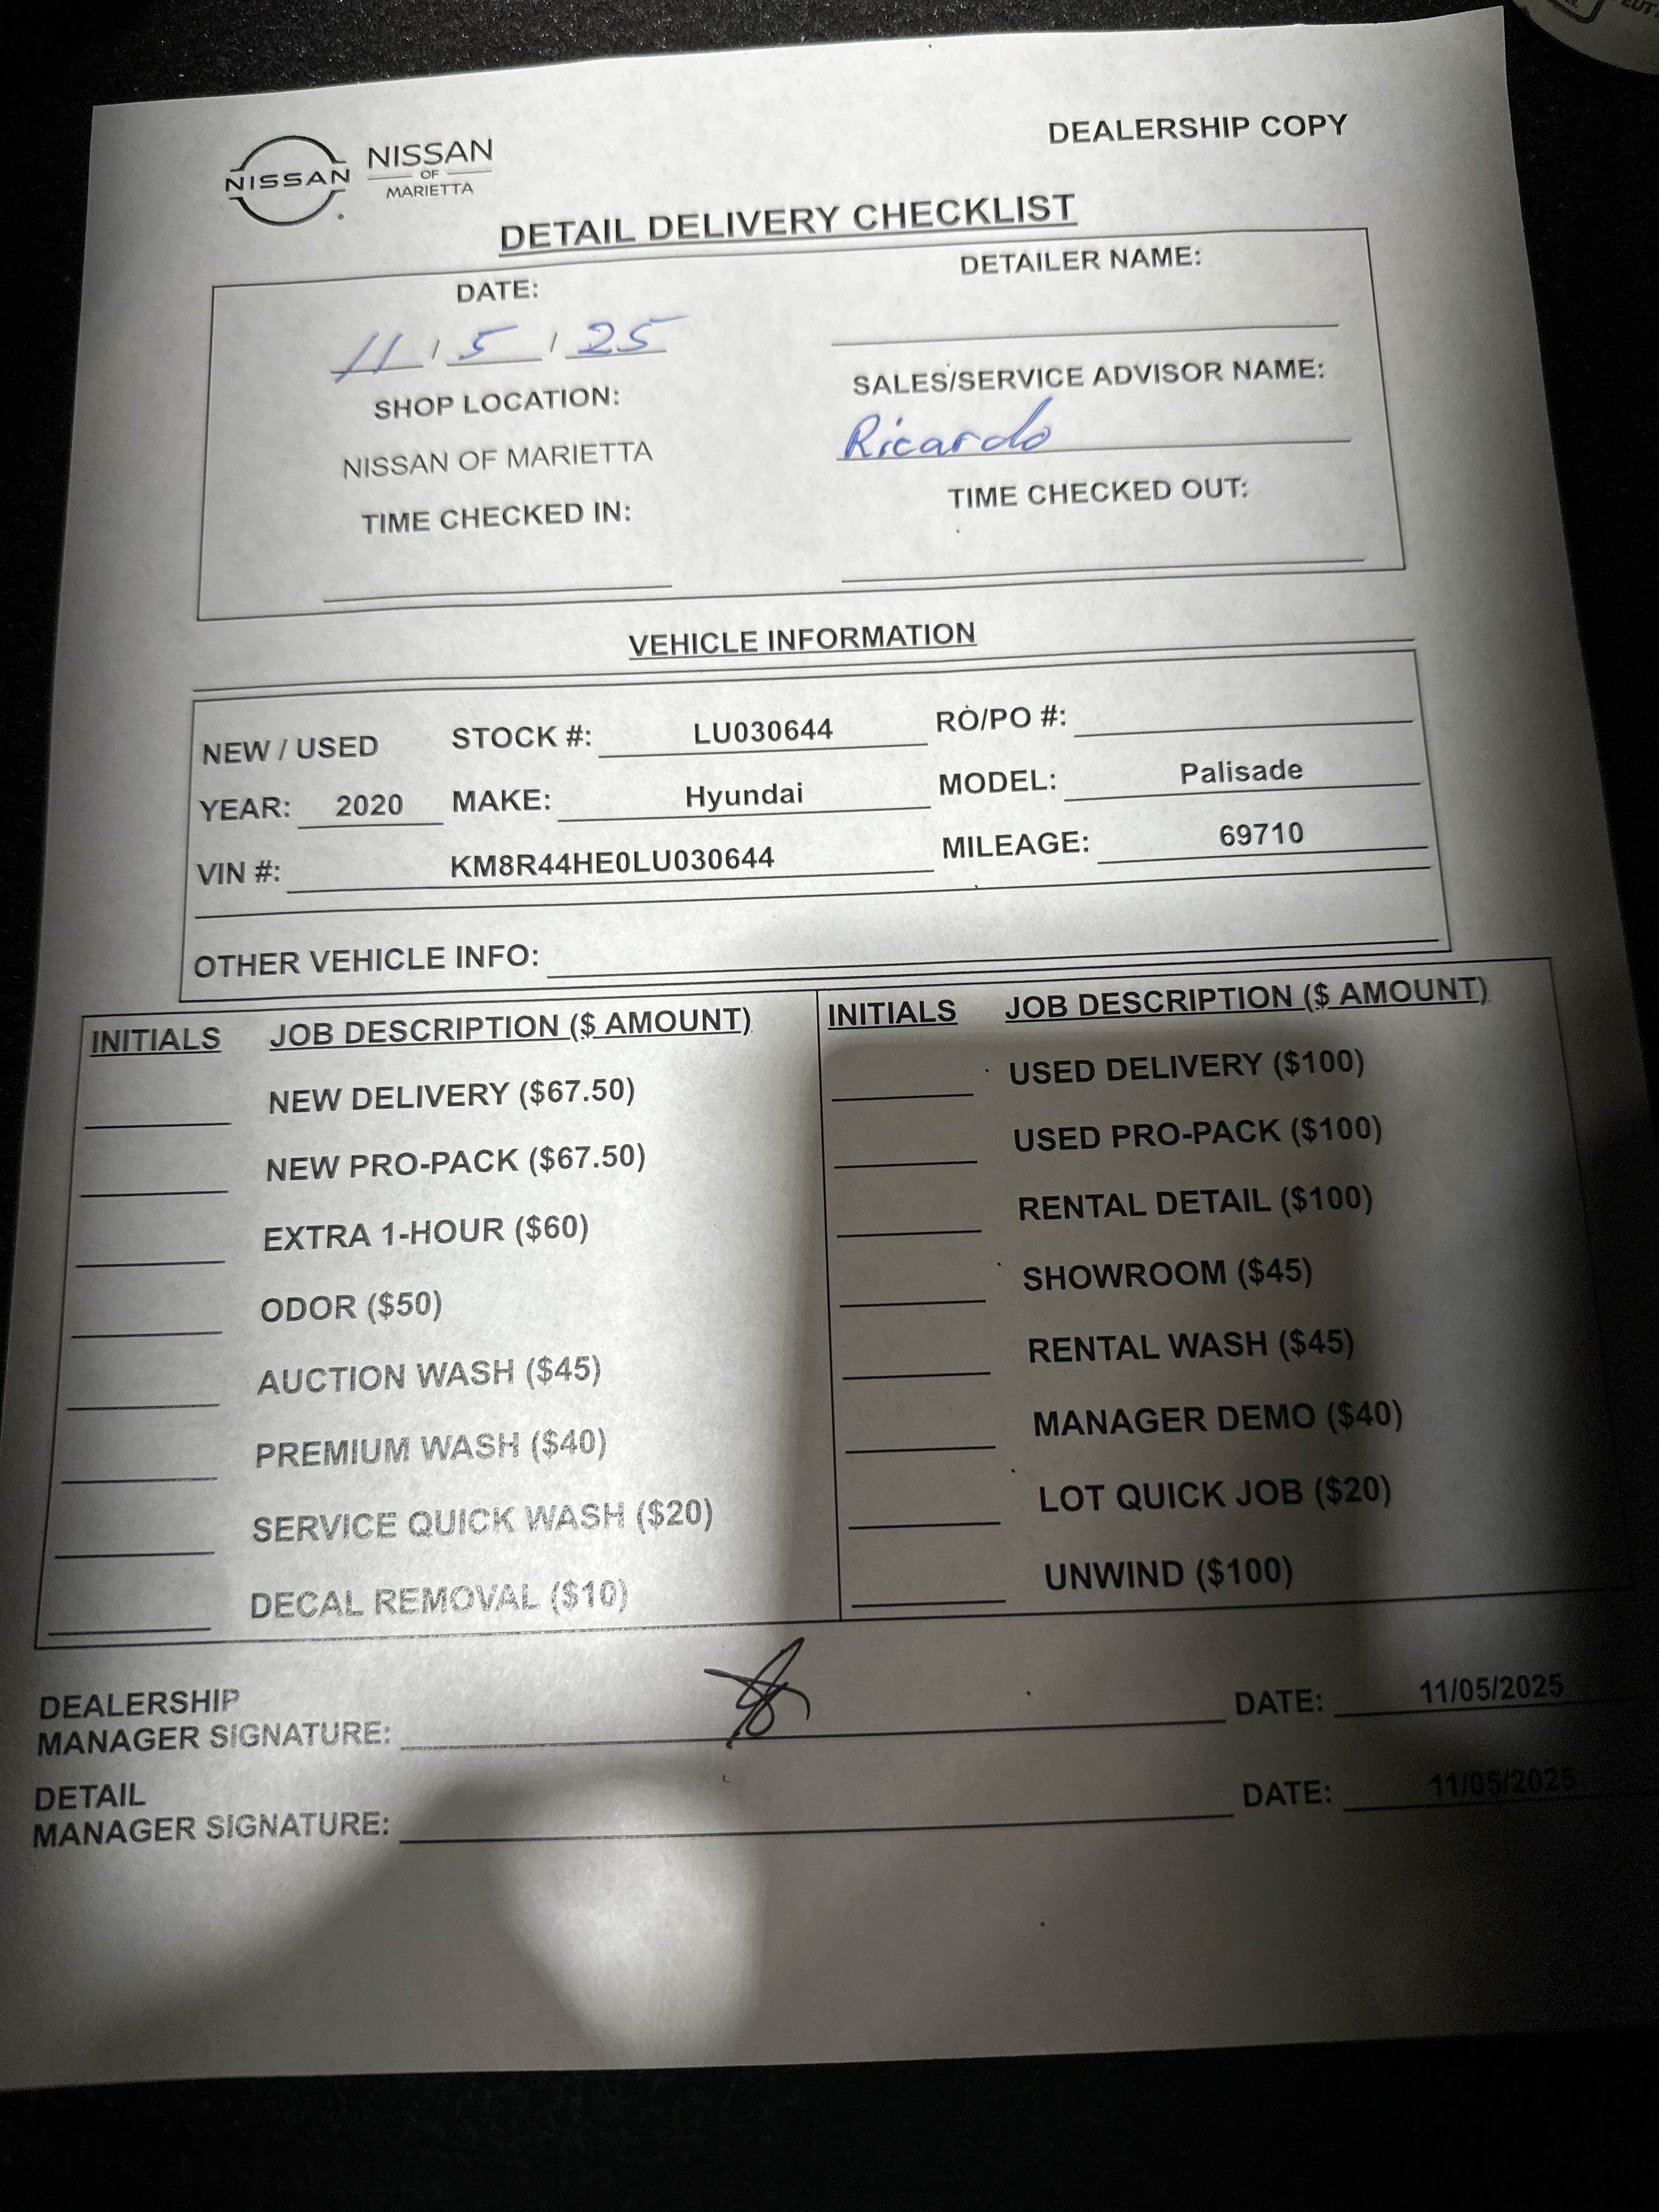 DEALERSHIP COPY
NISSAN
NISSAN
OF
MARIETTA
DETAIL DELIVERY CHECKLIST
DATE:
11 / 5 / 25
DETAILER NAME:
SHOP LOCATION:
NISSAN OF MARIETTA
SALES/SERVICE ADVISOR NAME:
Ricardo
TIME CHECKED IN:
TIME CHECKED OUT:
VEHICLE INFORMATION
NEW / USED STOCK #: LU030644 RO/PO #:
YEAR: 2020 MAKE: Hyundai MODEL: Palisade
VIN #: KM8R44HE0LU030644 MILEAGE: 69710
OTHER VEHICLE INFO:
INITIALS JOB DESCRIPTION ($ AMOUNT)
NEW DELIVERY ($67.50)
NEW PRO-PACK ($67.50)
EXTRA 1-HOUR ($60)
ODOR ($50)
AUCTION WASH ($45)
PREMIUM WASH ($40)
SERVICE QUICK WASH ($20)
DECAL REMOVAL ($10)
INITIALS JOB DESCRIPTION ($ AMOUNT)
USED DELIVERY ($100)
USED PRO-PACK ($100)
RENTAL DETAIL ($100)
SHOWROOM ($45)
RENTAL WASH ($45)
MANAGER DEMO ($40)
LOT QUICK JOB ($20)
UNWIND ($100)
DEALERSHIP
MANAGER SIGNATURE: DATE: 11/05/2025
DETAIL
MANAGER SIGNATURE: DATE: 11/05/2025